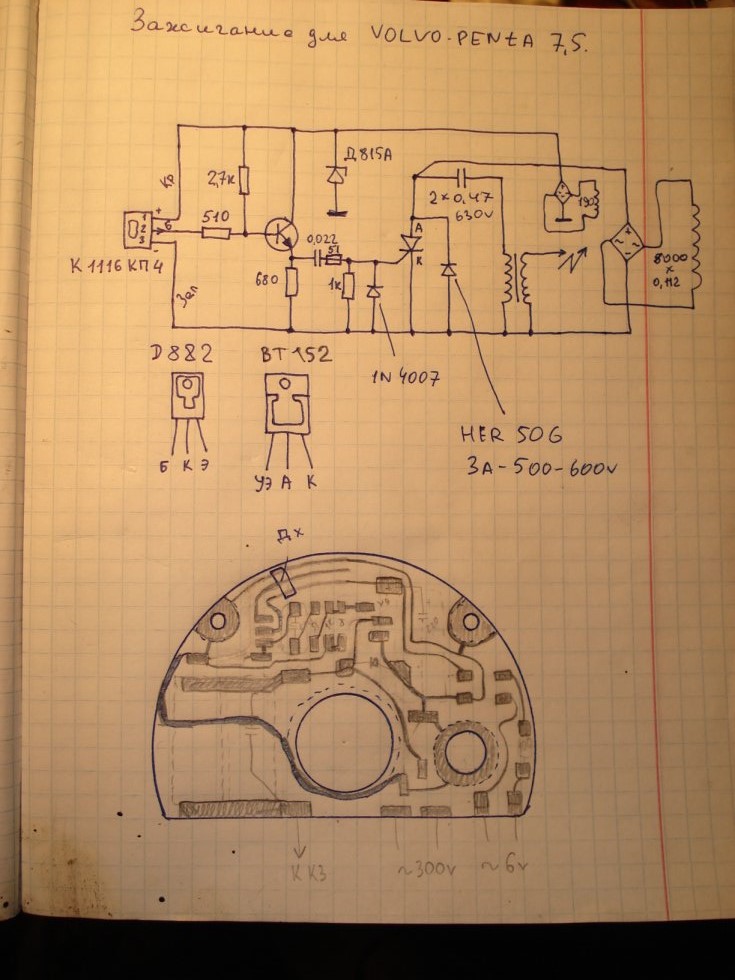 Зажигание для VOLVO-PENTA 7,5.
Кр
2,7к
Д815А
А
2×0,47
630v
190
1
2
3
+
б
-
510
0,022
51
К
К1116КП4
Зел
680
1к
8000
×
0,112
D882
BT152
1N4007
HER 506
3A-500-600v
Б К Э
УЭ А К
Дх
К КЗ
~300v
~6v